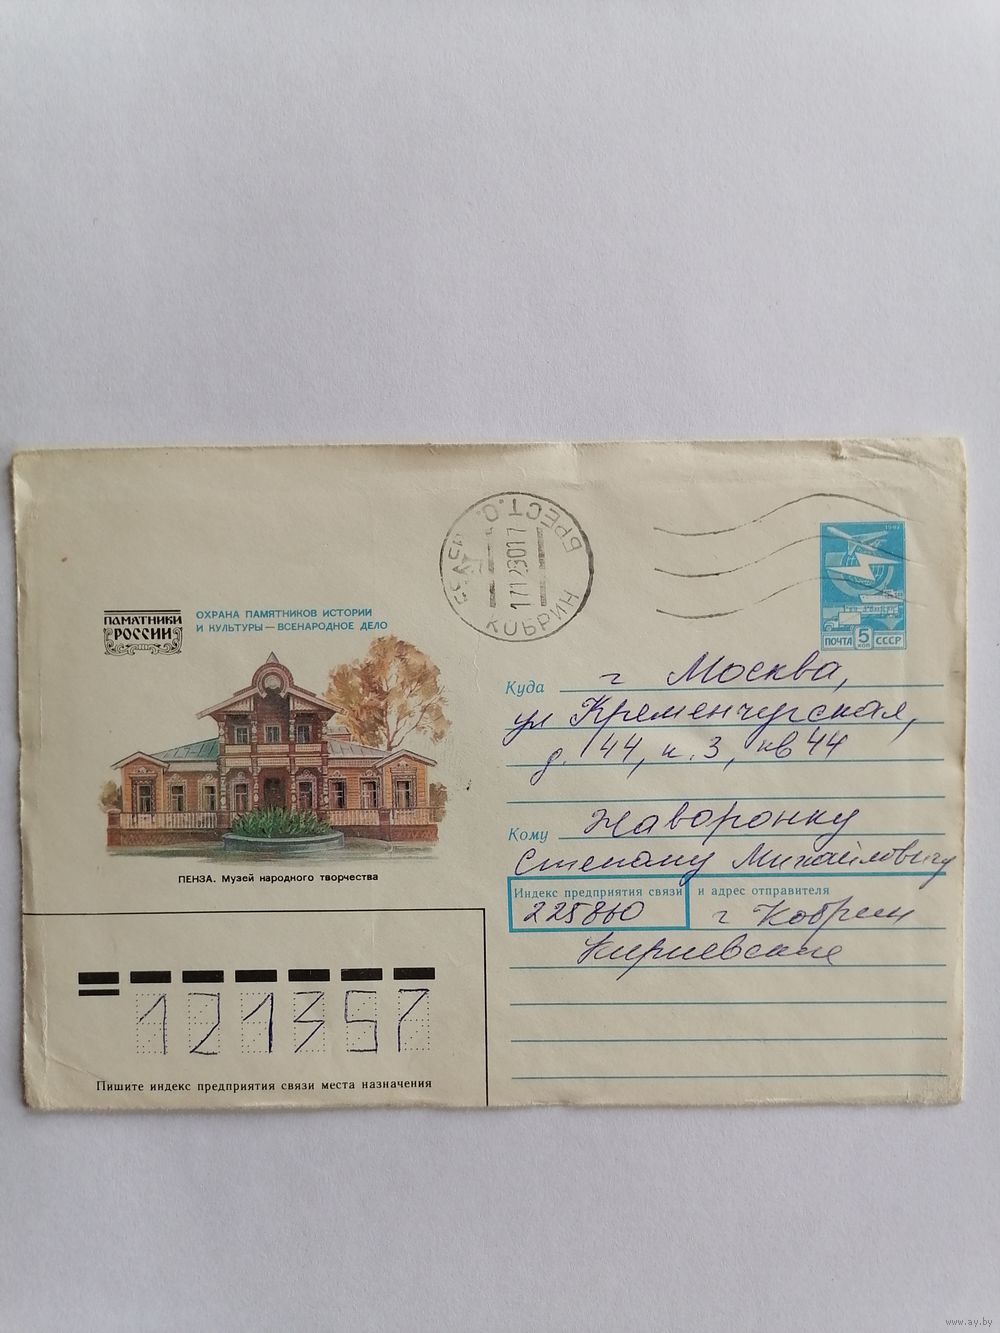 ПАМЯТНИКИ
РОССИИ
ОХРАНА ПАМЯТНИКОВ ИСТОРИИ
И КУЛЬТУРЫ — ВСЕНАРОДНОЕ ДЕЛО
ПЕНЗА. Музей народного творчества
БРЕСТ.О.
КОБРИН
1982
ПОЧТА 5 КОП СССР
Куда г Москва,
ул Кременчугская,
д. 44, к. 3, кв 44
Кому Жаворонку
Степану Михайловичу
Индекс предприятия связи и адрес отправителя
225860 г Кобрин
121357
Пишите индекс предприятия связи места назначения
www.ay.by